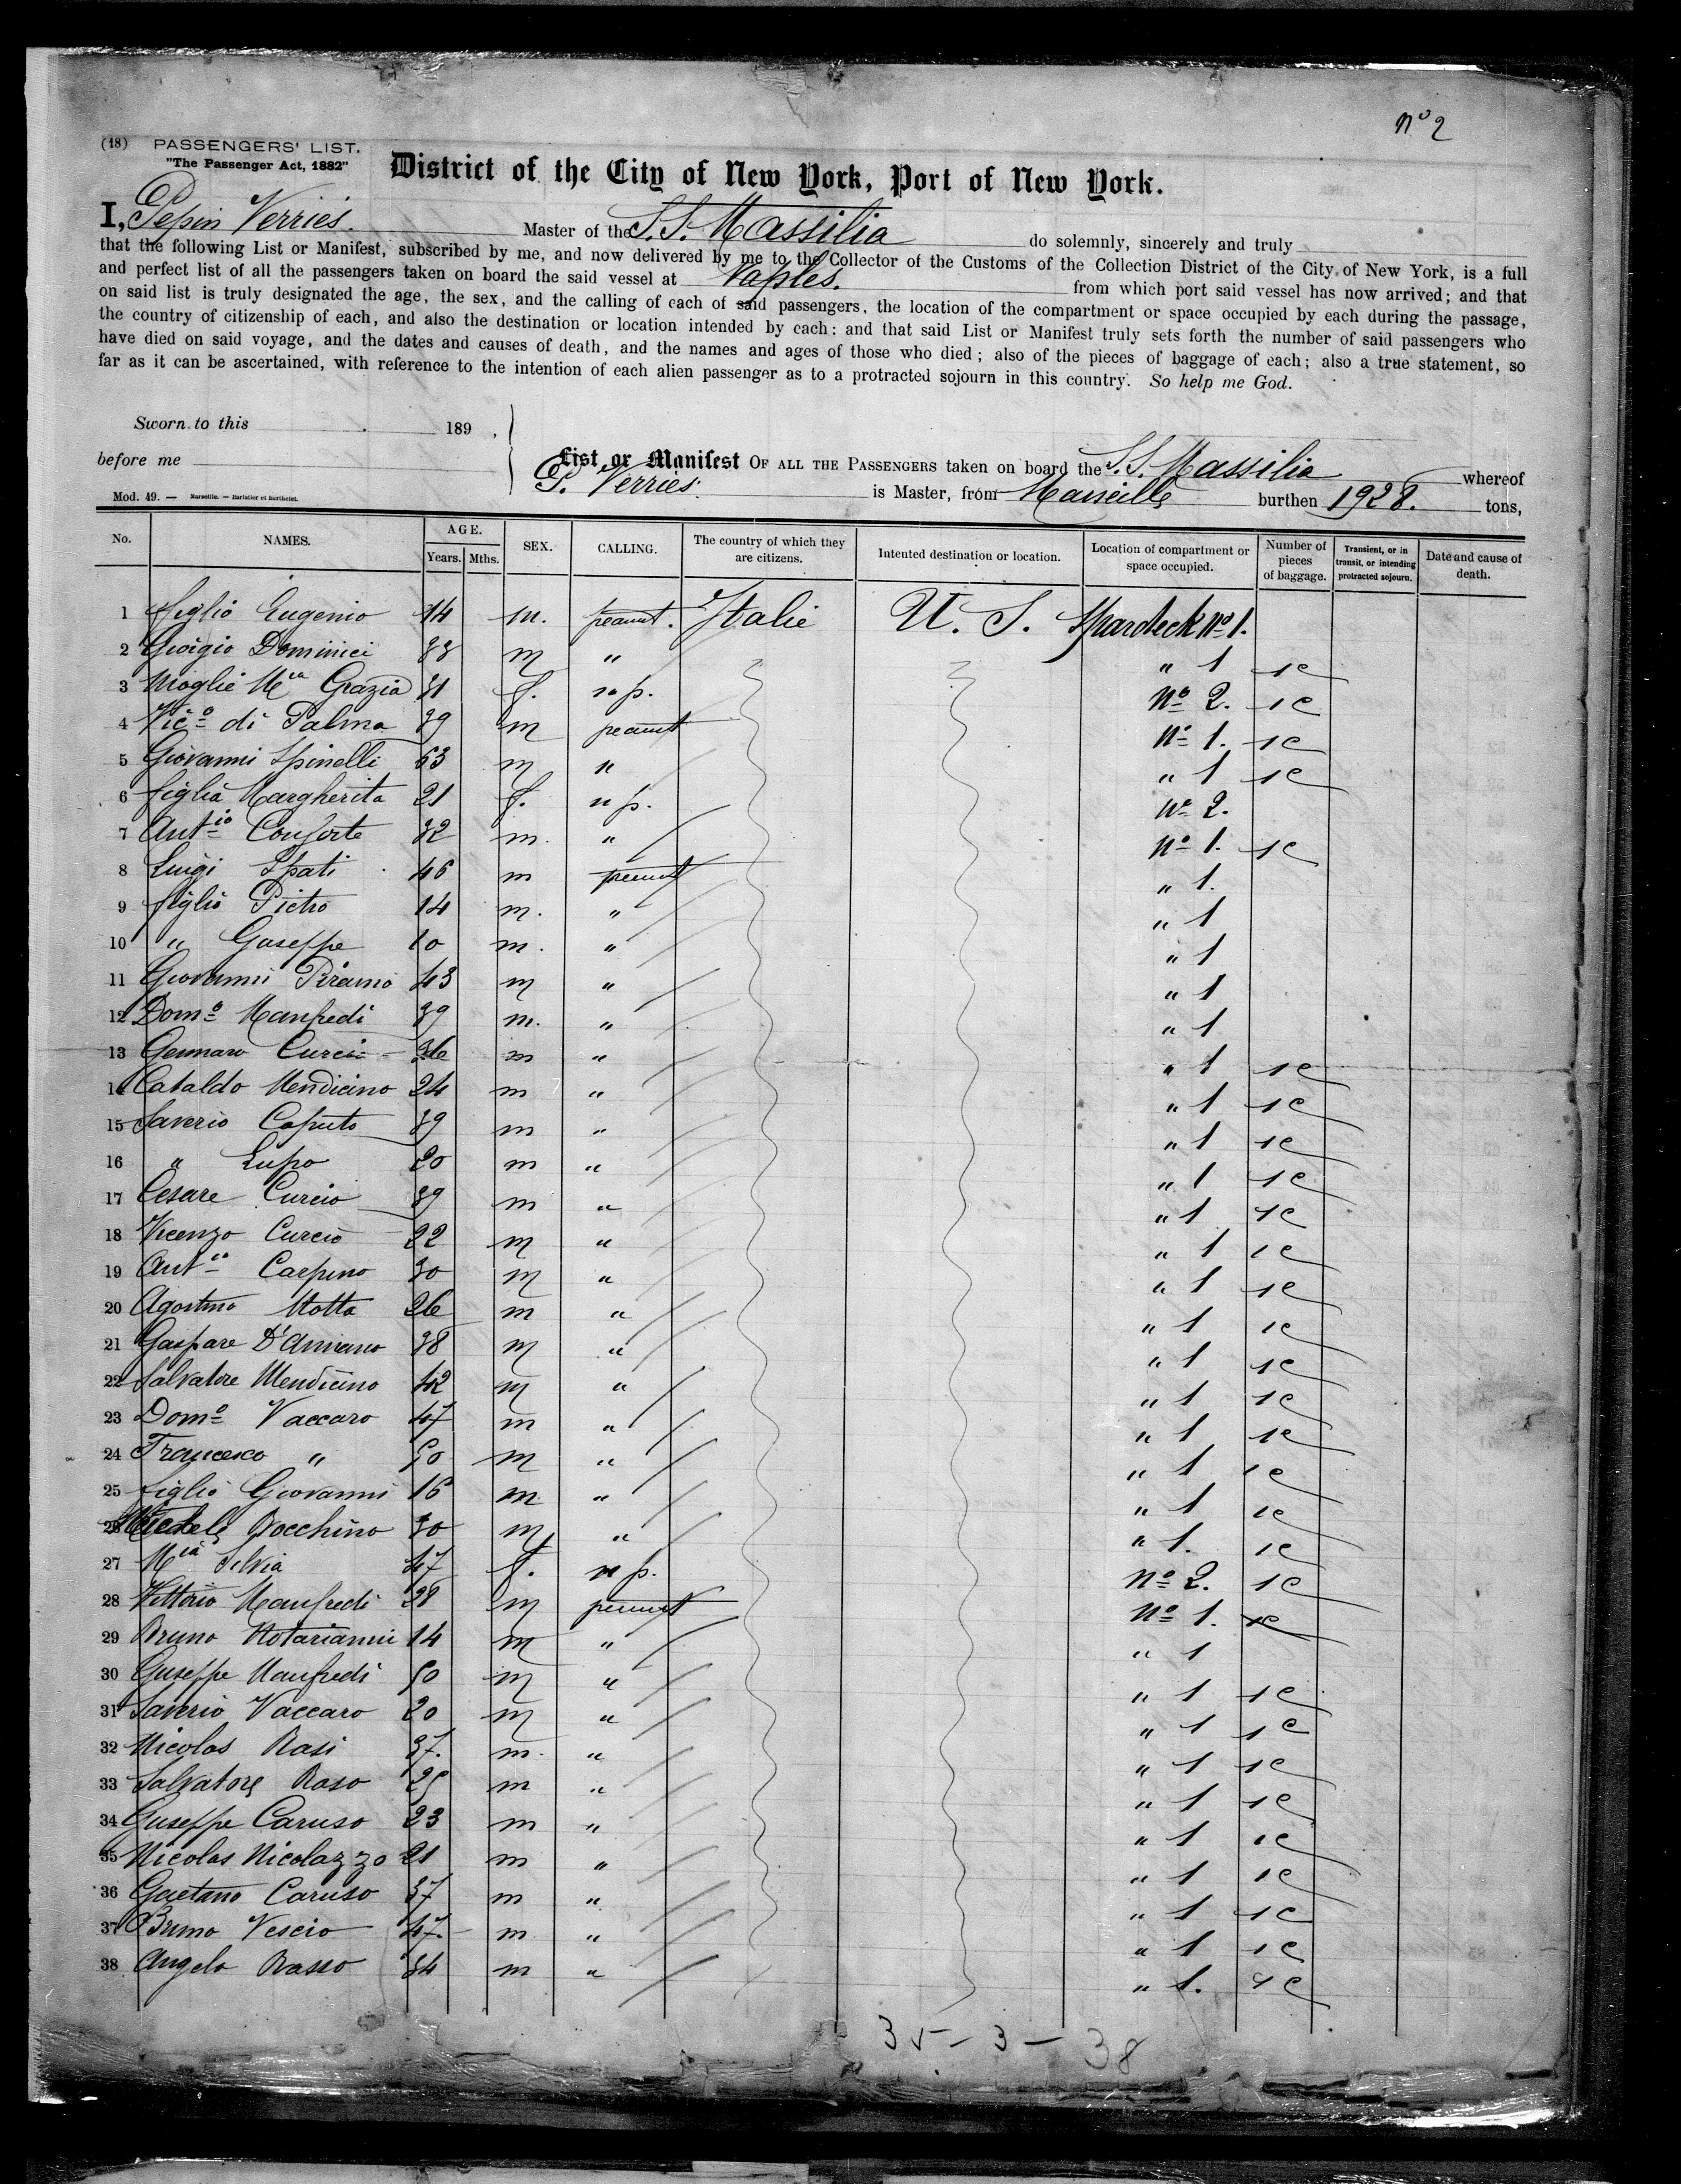 nº 2
(18) PASSENGERS' LIST.
"The Passenger Act, 1882"
District of the City of New York, Port of New York.
I, Pepin Verriès. Master of the S.S. Massilia do solemnly, sincerely and truly
that the following List or Manifest, subscribed by me, and now delivered by me to the Collector of the Customs of the Collection District of the City of New York, is a full
and perfect list of all the passengers taken on board the said vessel at Naples. from which port said vessel has now arrived; and that
on said list is truly designated the age, the sex, and the calling of each of said passengers, the location of the compartment or space occupied by each during the passage,
the country of citizenship of each, and also the destination or location intended by each: and that said List or Manifest truly sets forth the number of said passengers who
have died on said voyage, and the dates and causes of death, and the names and ages of those who died; also of the pieces of baggage of each; also a true statement, so
far as it can be ascertained, with reference to the intention of each alien passenger as to a protracted sojourn in this country. So help me God.
Sworn to this 189 ,
before me
List or Manifest OF ALL THE PASSENGERS taken on board the S.S. Massilia whereof
P. Verriès. is Master, from Marseille burthen 1928. tons,
Mod. 49. — Marseille. — Barlatier et Barthelet.
No. NAMES. AGE. Years. Mths. SEX. CALLING. The country of which they are citizens. Intented destination or location. Location of compartment or space occupied. Number of pieces of baggage. Transient, or in transit, or intending protracted sojourn. Date and cause of death.
1 figlio Eugenio 14 m. peasnt. Italie U. S. Spardeck nº 1.
2 Giorgio Dominici 33 m " " 1 1c
3 Moglie Mia Grazia 31 f. n p. nº 2. 1c
4 Vicº di Palma 39 m peasnt nº 1. 1c
5 Giovanni Spinelli 53 m " " 1 1c
6 figlia Margherita 21 f. n p. nº 2.
7 Antio Conforte 32 m. " nº 1. 1c
8 Luigi Spati 46 m peasnt " 1.
9 figlio Pietro 14 m. " " 1
10 " Guseppe 10 m. " " 1
11 Giovanni Piramo 43 m " " 1
12 Domº Manfredi 39 m. " " 1
13 Gennaro Curcio 36 m " " 1 1c
14 Cataldo Mendicino 24 m " " 1 1c
15 Saverio Caputo 39 m " " 1 1c
16 " Lupo 20 m " " 1 1c
17 Cesare Curcio 39 m " " 1 1c
18 Vicenzo Curcio 22 m " " 1 1c
19 Antio Carpino 30 m " " 1 1c
20 Agostino Motta 26 m " " 1 1c
21 Gaspare D'Amiano 38 m " " 1 1c
22 Salvatore Mendicino 42 m " " 1 1c
23 Domº Vaccaro 47 m " " 1 1c
24 Francesco " 50 m " " 1 1c
25 figlio Giovanni 16 m " " 1 1c
26 Michele Rocchino 30 m " " 1. 1c
27 Mia Silvia 47 f. n p. nº 2. 1c
28 Vittorio Manfredi 28 m peasnt nº 1. 1c
29 Bruno Notarianni 14 m " " 1
30 Guseppe Manfredi 50 m " " 1 1c
31 Saverio Vaccaro 20 m " " 1 1c
32 Nicolas Rasi 37. m. " " 1 1c
33 Salvatore Raso 25 m " " 1 1c
34 Guseppe Caruso 23 m " " 1 1c
35 Nicolas Nicolazzo 21 m " " 1 1c
36 Gaetano Caruso 37 m " " 1 1c
37 Bruno Vescio 47. m " " 1 1c
38 Angelo Rasso 34 m " " 1. 1c
35 – 3 – 38